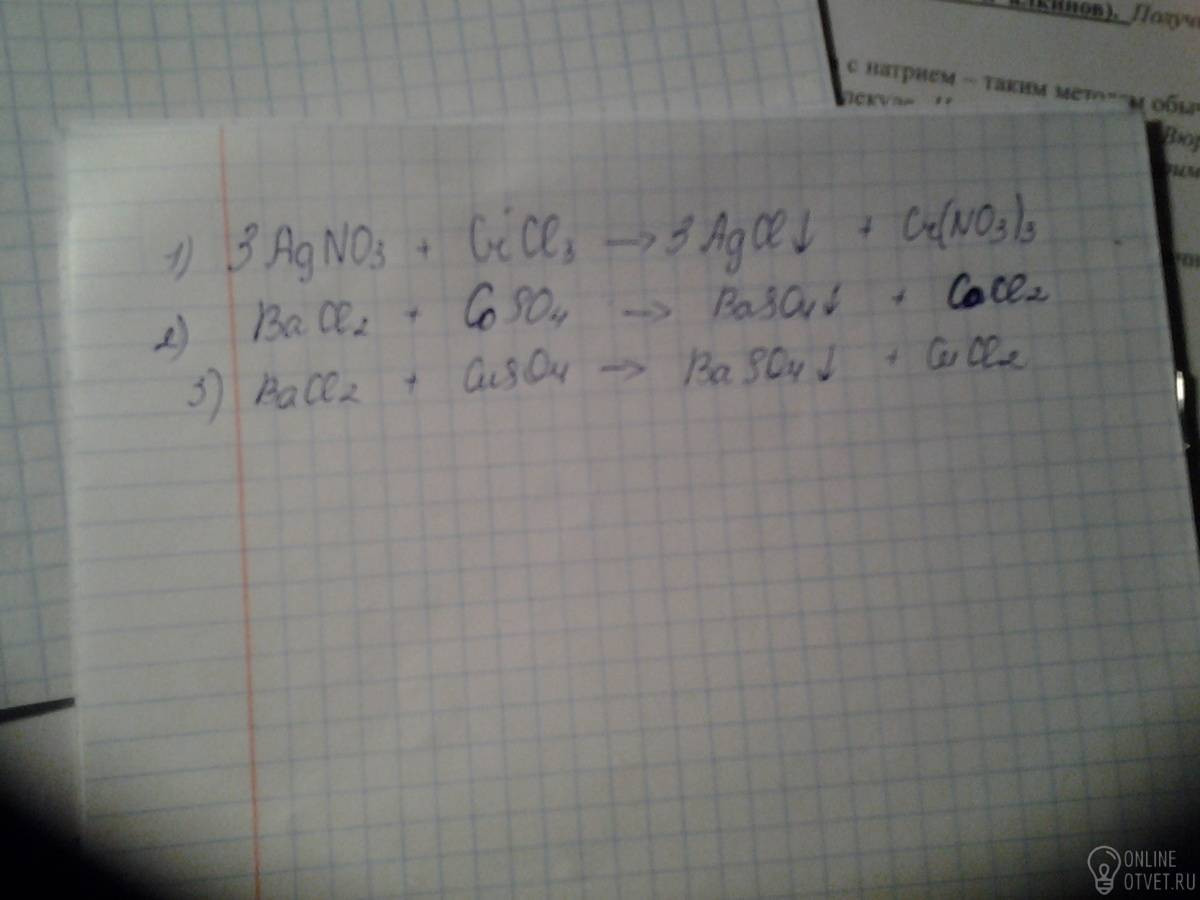 алкинов). Получ
с натрием – таким методом обы
1) 3AgNO3 + CrCl3 → 3AgCl↓ + Cr(NO3)3
2) BaCl2 + CoSO4 → BaSO4↓ + CoCl2
3) BaCl2 + CuSO4 → BaSO4↓ + CuCl2
ONLINE
OTVET.RU